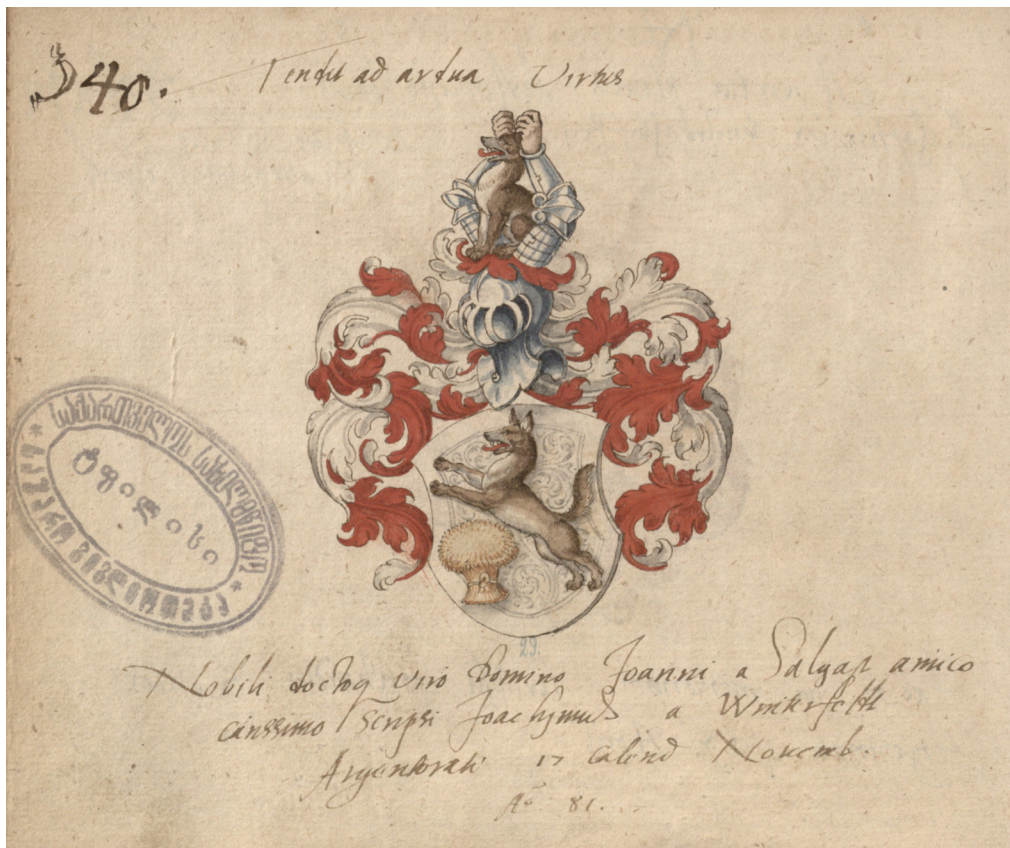 340.
Tendit ad ardua Virtus
საქართველოს სახელმწიფო
ტფილისი
29.
Nobili doctoq viro Domino Joanni a Salgast amico
carissimo Scripsi Joachimus a Winterfeldt
Argentorati 17 Calend Novemb.
Aº 81.